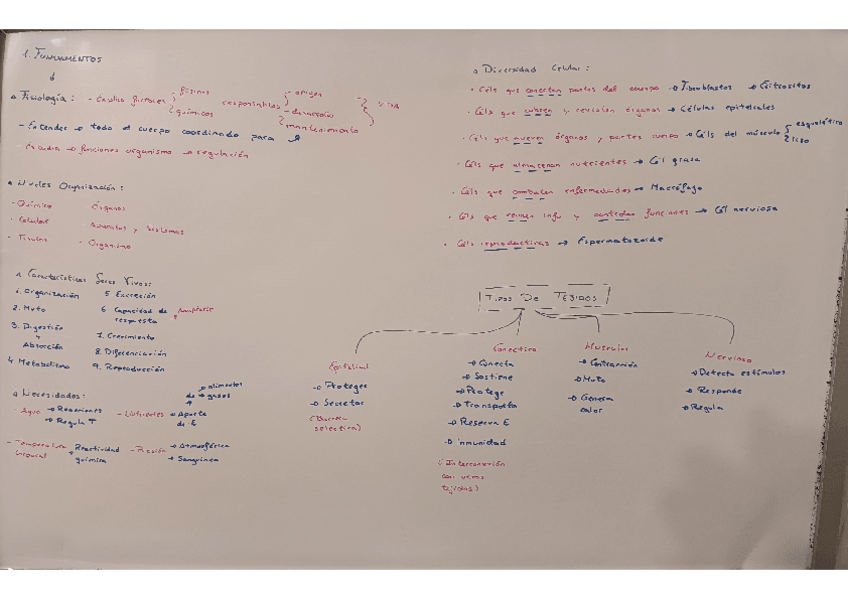 1. FUNDAMENTOS
Fisiología: - Estudio factores físicos químicos responsables origen desarrollo mantenimiento VIDA
- Entender → todo el cuerpo coordinado para
- Estudia → funciones organismo → regulación
Niveles Organización:
- Químico Órganos
- Celular Aparatos y Sistemas
- Tisular - Organismo
Características Seres Vivos:
1. Organización 5. Excreción
2. Mvto 6. Capacidad de respuesta adaptarse
3. Digestión y Absorción 7. Crecimiento
4. Metabolismo 8. Diferenciación
9. Reproducción
Necesidades:
- Agua → Reacciones → Regula T - Nutrientes → de alimentos gases → Aporte de E
- Temperatura corporal → Reactividad química - Presión → Atmosférica → Sanguínea
Diversidad Celular:
· Céls que conectan partes del cuerpo → Fibroblastos → Eritrocitos
· Céls que cubren y revisten órganos → Células epiteliales
· Céls que mueven órganos y partes cuerpo → Céls del músculo esquelético liso
· Céls que almacenan nutrientes → Cél grasa
· Céls que combaten enfermedades → Macrófago
· Céls que reúnen info y controlan funciones → Cél nerviosa
· Céls reproductivas → Espermatozoide
TIPOS DE TEJIDOS
Epitelial
→ Protege
→ Secretor
(Barrera selectiva)
Conectivo
→ Conecta
→ Sostiene
→ Protege
→ Transporta
→ Reserva E
→ inmunidad
(Interconexión con otros tejidos)
Muscular
→ Contracción
→ Mvto
→ Genera calor
Nervioso
→ Detecta estímulos
→ Responde
→ Regula